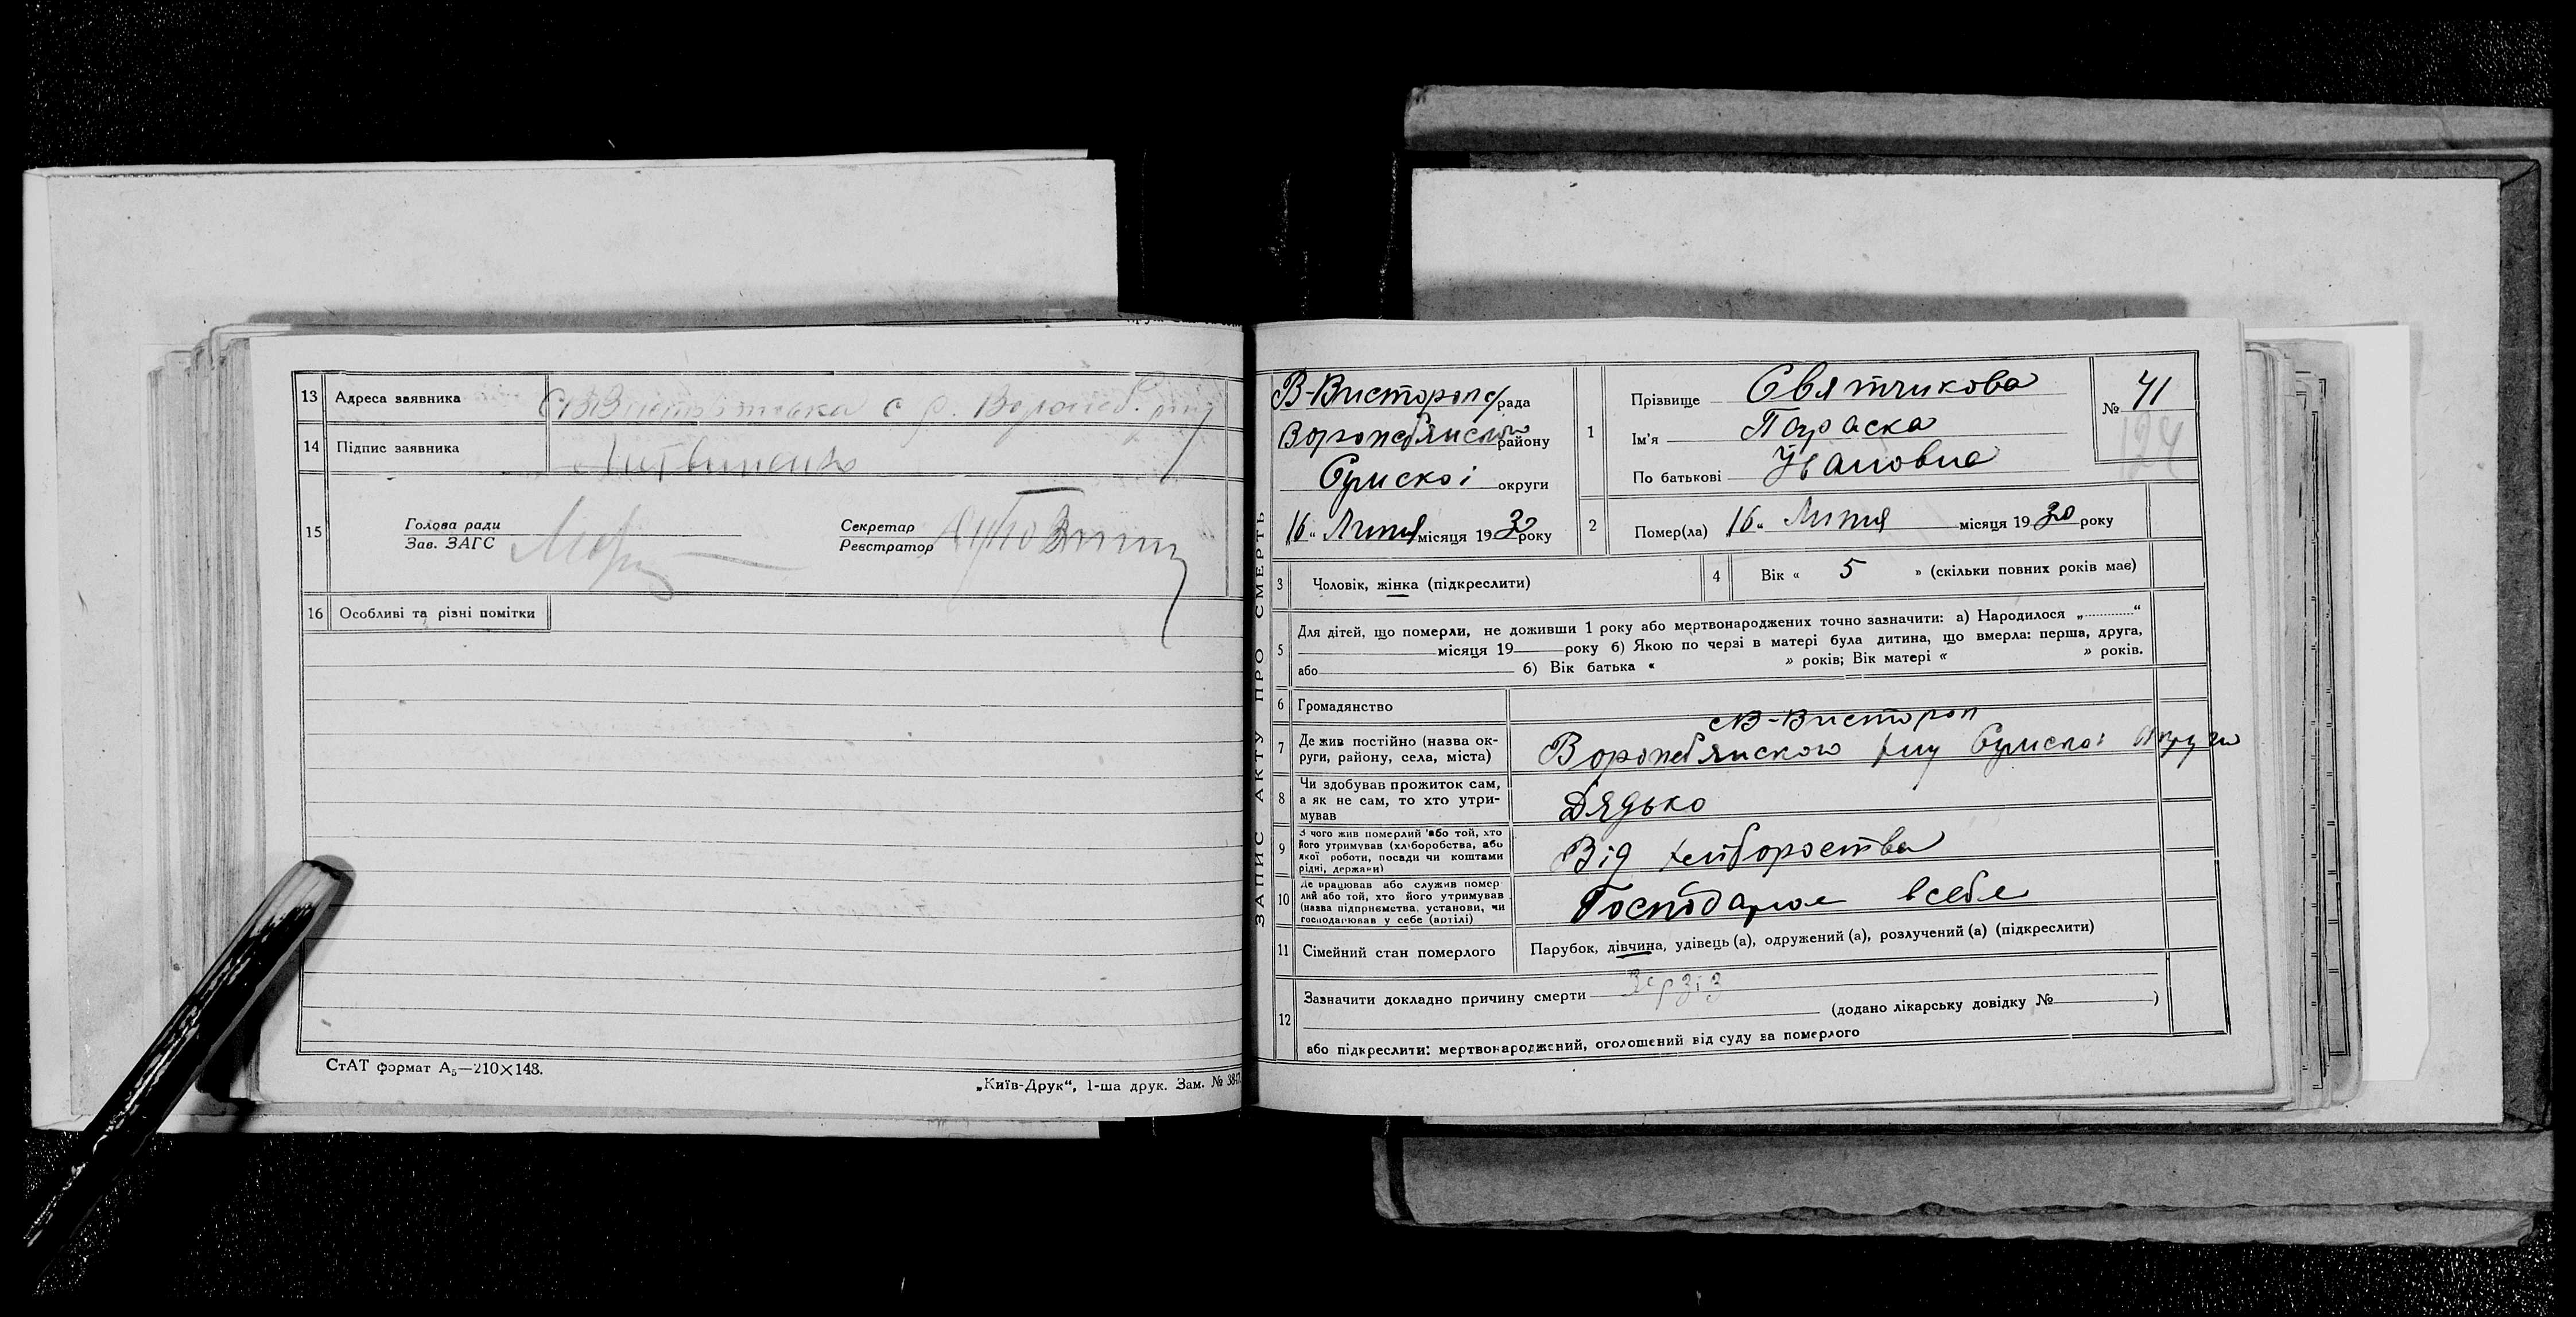 13 Адреса заявника
14 Підпис заявника Литвиненко
15 Голова ради
Зав. ЗАГС
Секретар
Реєстратор
16 Особливі та різні помітки
СтАТ формат А₅—210×148.
„Київ-Друк“, 1-ша друк. Зам. №
ЗАПИС АКТУ ПРО СМЕРТЬ
В-Висторопс рада
району
Сумскоі округи
„16“ Липня місяця 1930 року
1 Прізвище Святчикова
Ім'я Параска
По батькові Ивановна
№ 41
124
2 Помер(ла) „16“ Липня місяця 1930 року
3 Чоловік, жінка (підкреслити)
4 Вік « 5 » (скільки повних років має)
5 Для дітей, що померли, не доживши 1 року або мертвонароджених точно зазначити: а) Народилося „ “
місяця 19 року б) Якою по черзі в матері була дитина, що вмерла: перша, друга,
або б) Вік батька « » років; Вік матері « » років.
6 Громадянство
7 Де жив постійно (назва ок-
руги, району, села, міста)
В-Вистороп
Сумскоі Округи
8 Чи здобував прожиток сам,
а як не сам, то хто утри-
мував
Дядько
9 З чого жив померлий або той, хто
його утримував (хліборобства, або
якої роботи, посади чи коштами
рідні, держави)
Від
10 Де працював або служив помер
лий або той, хто його утримував
(назва підприємства, установи, чи
господарював у себе (артілі)
всебе
11 Сімейний стан померлого
Парубок, дівчина, удівець (а), одружений (а), розлучений (а) (підкреслити)
12 Зазначити докладно причину смерти
(додано лікарську довідку № )
або підкреслити: мертвонароджений, оголошений від суду за померлого